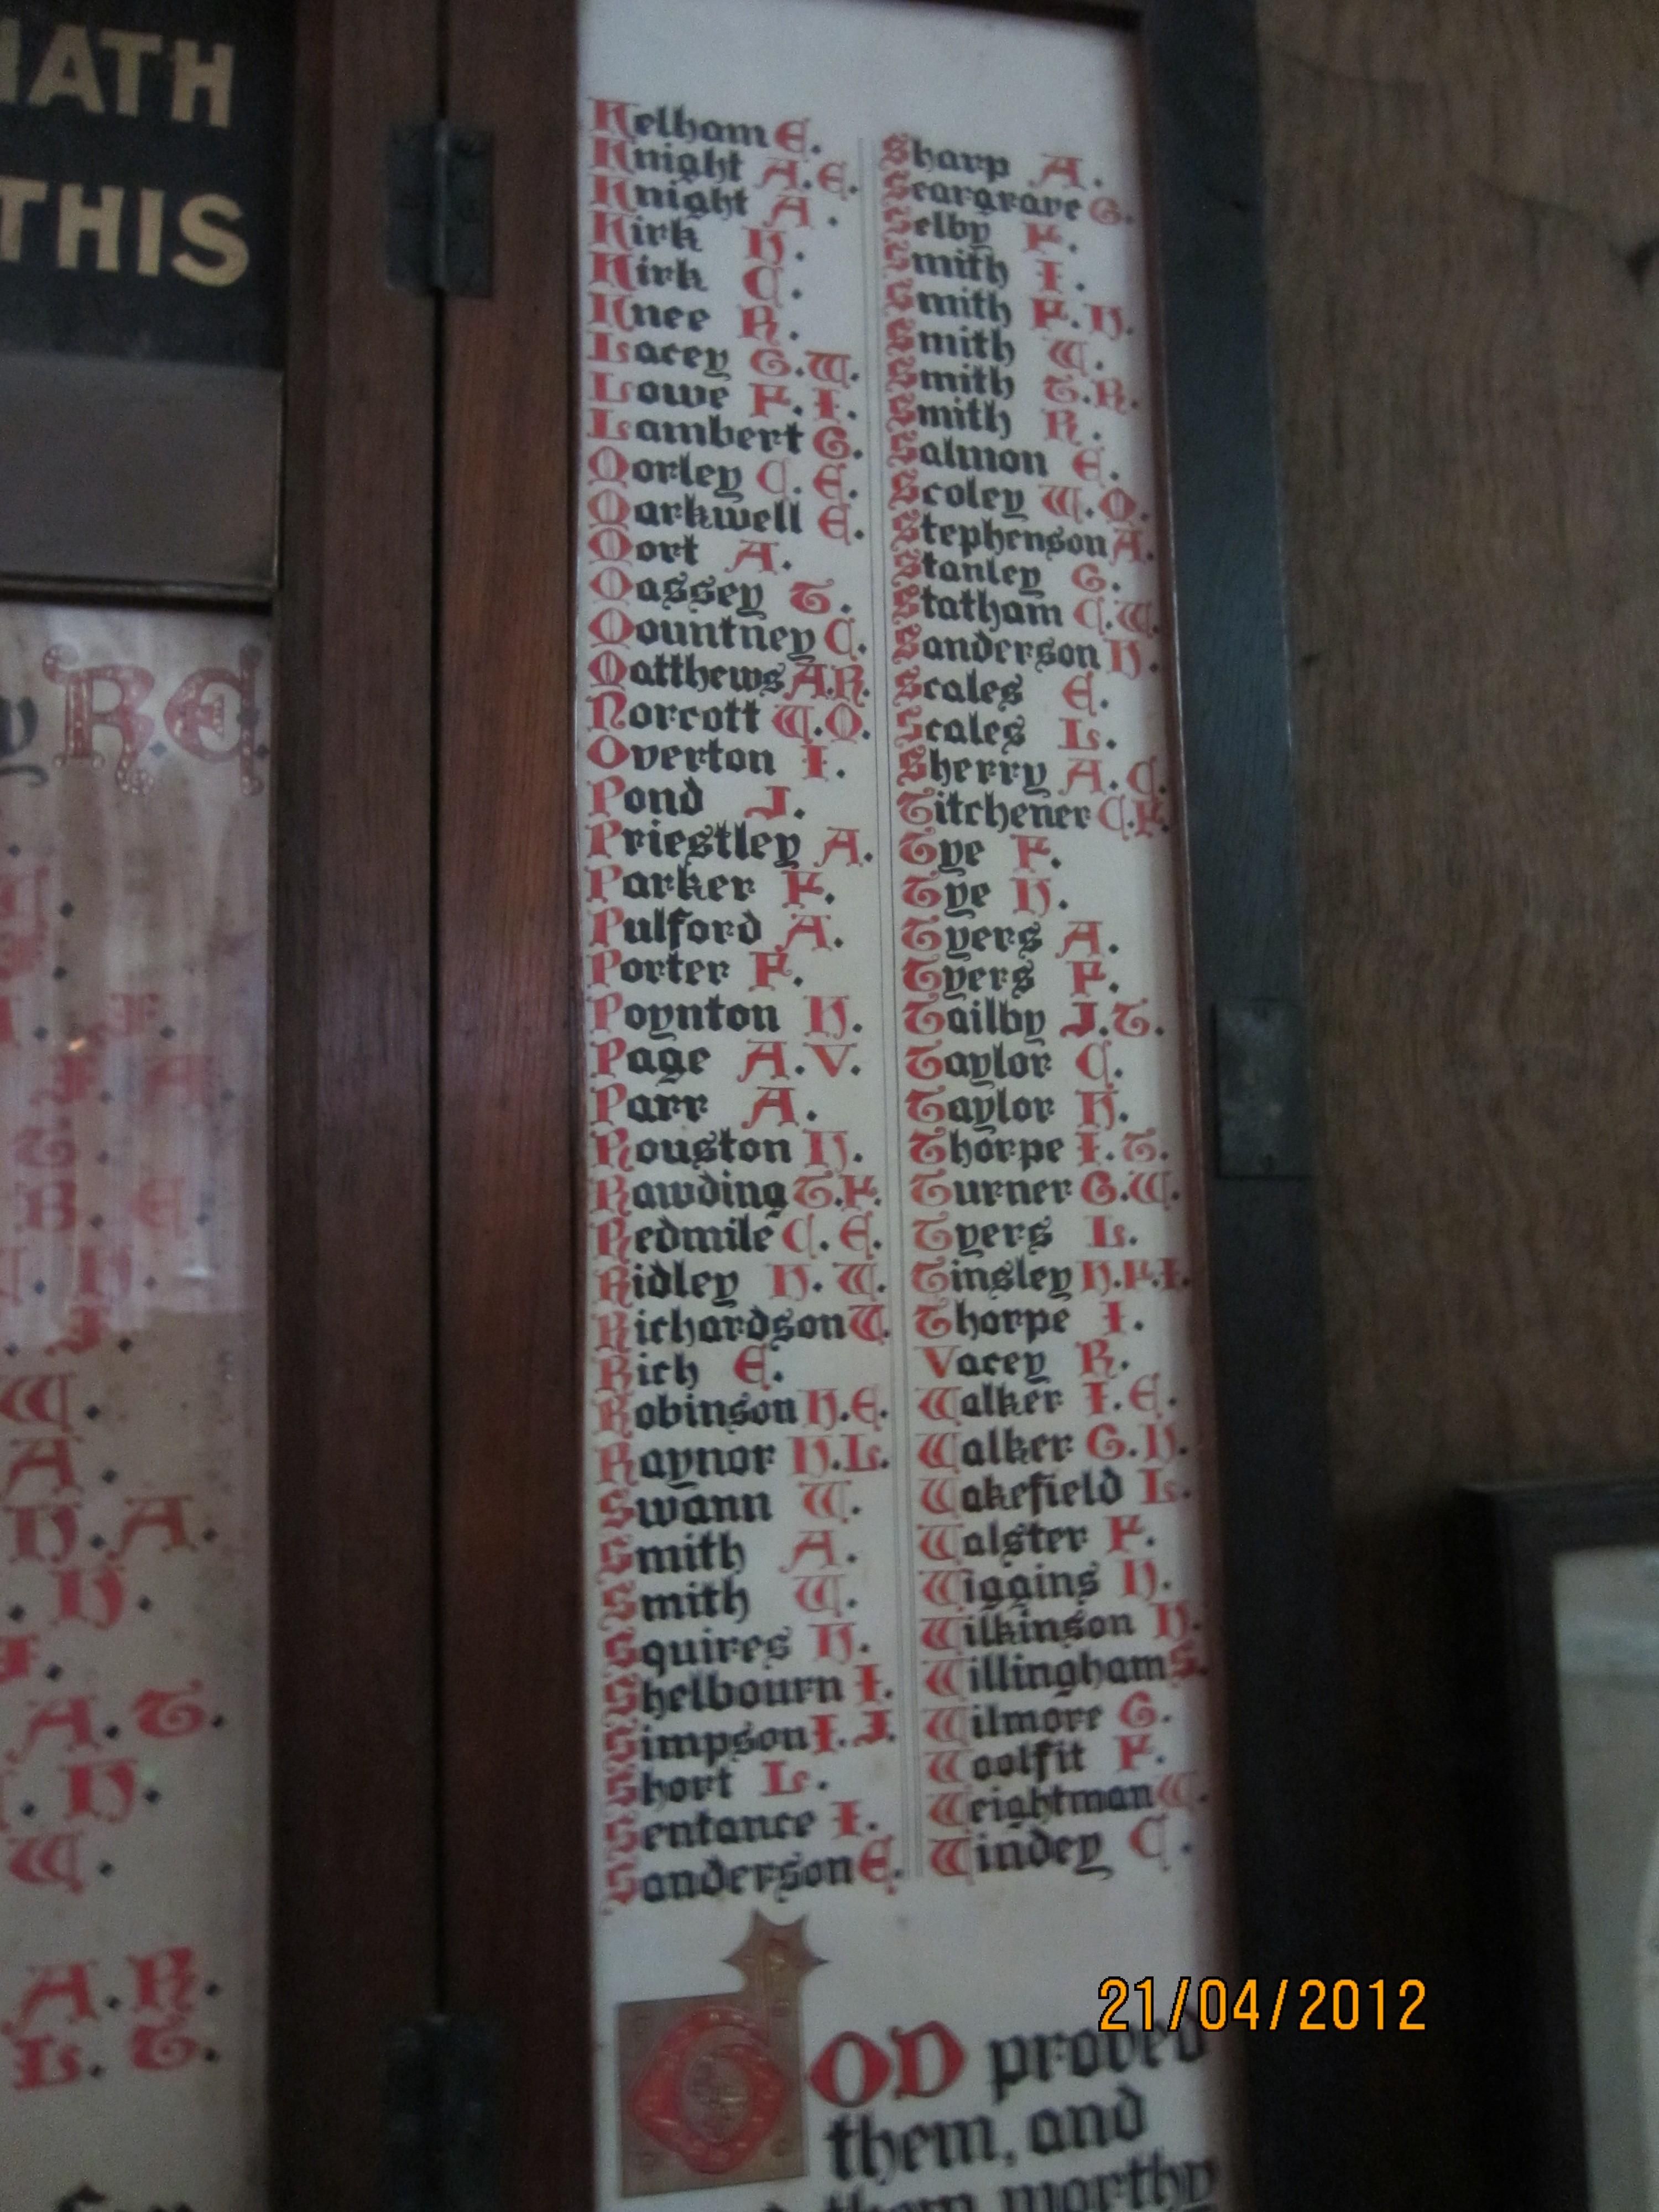 HATH
THIS
RE
A.
H.A.
H.
A.T.
H.
W.
A.R.
L.T.
Kelham E.
Knight A.E.
Knight A.
Kirk H.
Kirk C.
Knee R.
Lacey G.W.
Lowe F.I.
Lambert G.
Morley C.E.
Markwell E.
Mort A.
Massey T.
Mountney C.
Matthews A.R.
Norcott W.O.
Overton I.
Pond J.
Priestley A.
Parker F.
Pulford A.
Porter F.
Poynton H.
Page A.V.
Parr A.
Rouston H.
Rawding T.F.
Redmile C.E.
Ridley H.W.
Richardson W.
Rich E.
Robinson H.E.
Raynor H.L.
Swann W.
Smith A.
Smith W.
Squires H.
Shelbourn I.
Simpson I.J.
Short L.
Sentance I.
Sanderson E.
Sharp A.
Seargrave G.
Selby F.
Smith I.
Smith F.H.
Smith W.
Smith T.R.
Smith R.
Salmon E.
Scoley W.O.
Stephenson A.
Stanley G.
Statham C.W.
Sanderson H.
Scales E.
Scales L.
Sherry A.C.
Titchener C.F.
Tye F.
Tye H.
Tyers A.
Tyers F.
Tailby J.T.
Taylor C.
Taylor H.
Thorpe I.T.
Turner G.W.
Tyers L.
Tinsley H.F.I.
Thorpe I.
Vacey R.
Walker I.E.
Walker G.H.
Wakefield L.
Walster F.
Wiggins H.
Wilkinson H.
Willingham S.
Wilmore G.
Woolfit F.
Weightman W.
Windey C.
GOD proved
them, and
them worthy
21/04/2012